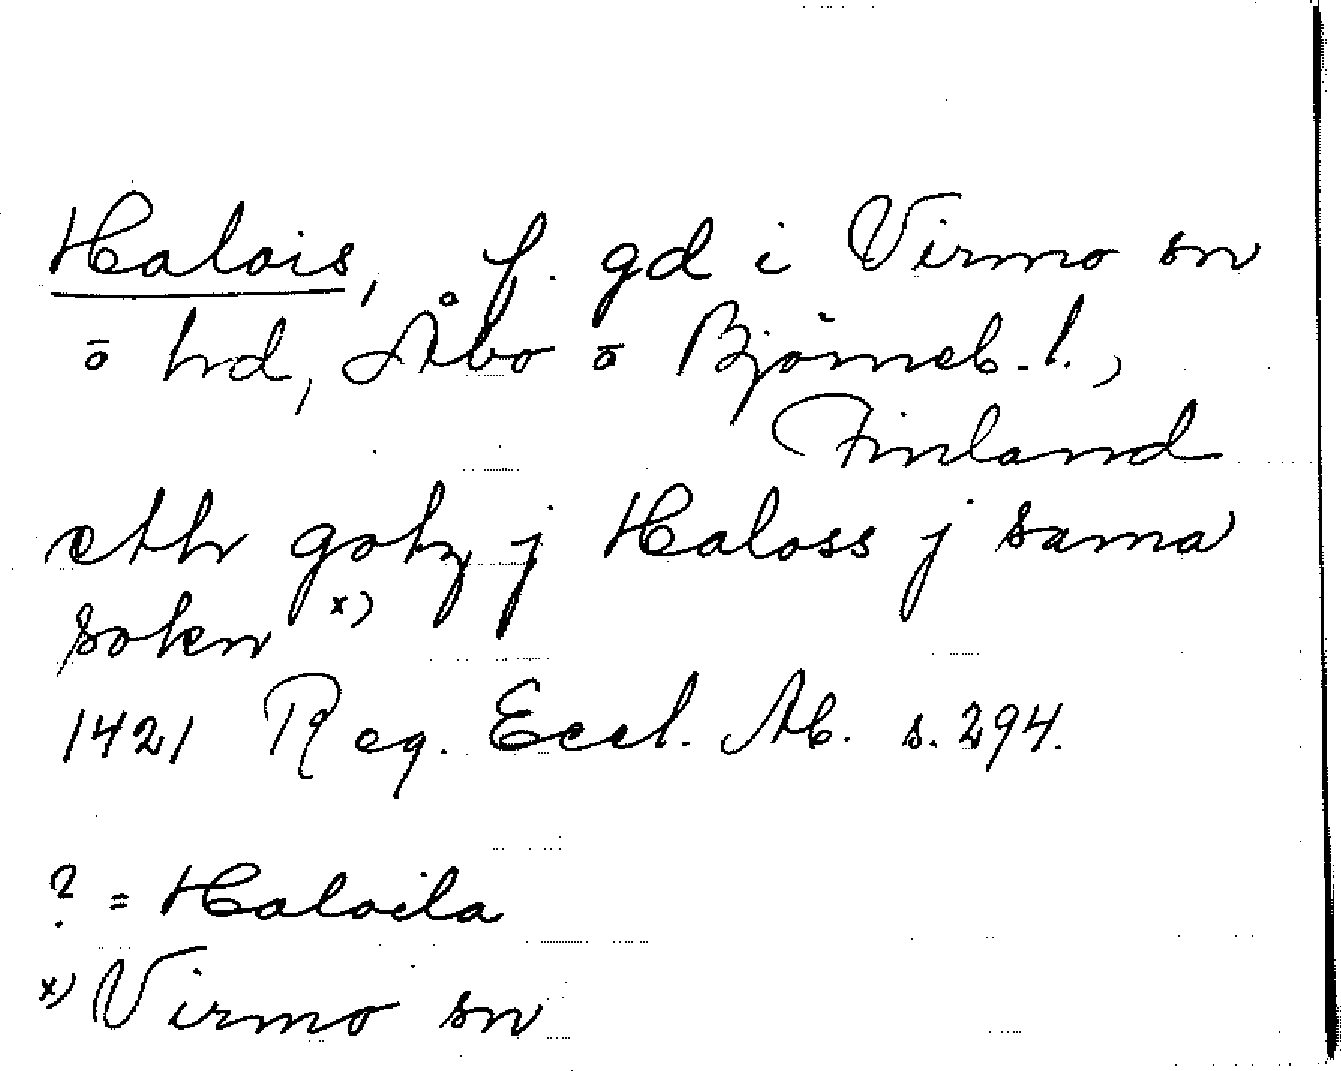 Halois, f. gd i Virmo sn
o hd, Åbo o Björneb. l.,
Finland
etth gotz j Haloss j sama
sokn x)
1421 Reg. Eccl. Ab. s. 294.
? = Haloila
x) Virmo sn